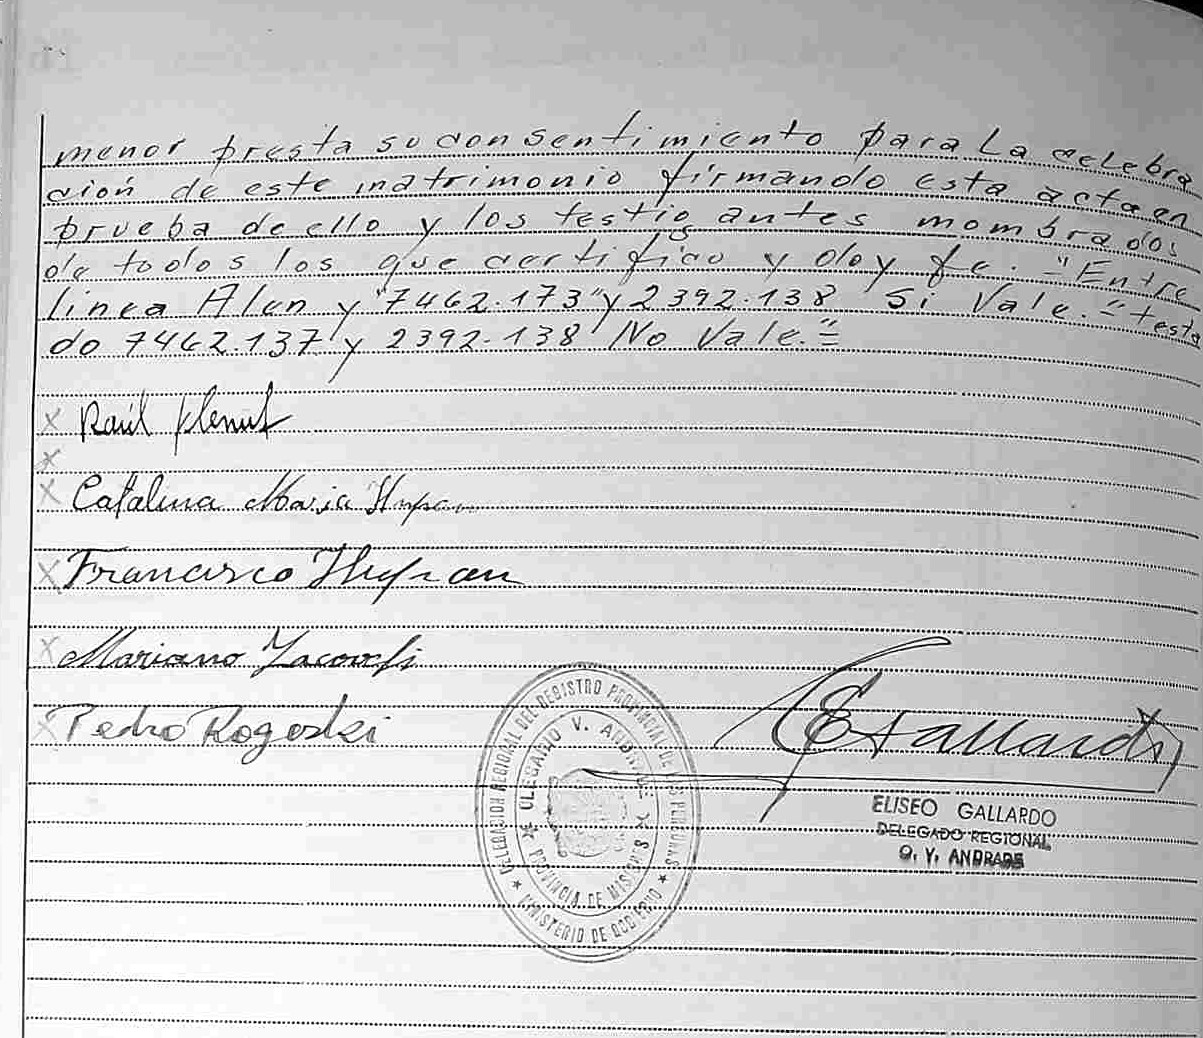 menor presta su consentimiento para la celebra
ción de este matrimonio firmando esta acta en
prueba de ello y los testig antes mombrados
de todos los que certifico y doy fe. "Entre
linea Alen y "7462.173" y 2392.138 Si Vale." testa
do 7462.137 y 2392.138 No Vale."=
x Raúl
x
x Catalina Maria
x Francisco
x Mariano
x Pedro Rogoski
EGallardo
DELEGACION REGIONAL DEL REGISTRO PROVINCIAL DE LAS PERSONAS
OLEGARIO V. ANDRADE
PROVINCIA DE MISIONES
MINISTERIO DE GOBIERNO
ELISEO GALLARDO
DELEGADO REGIONAL
O. V. ANDRADE